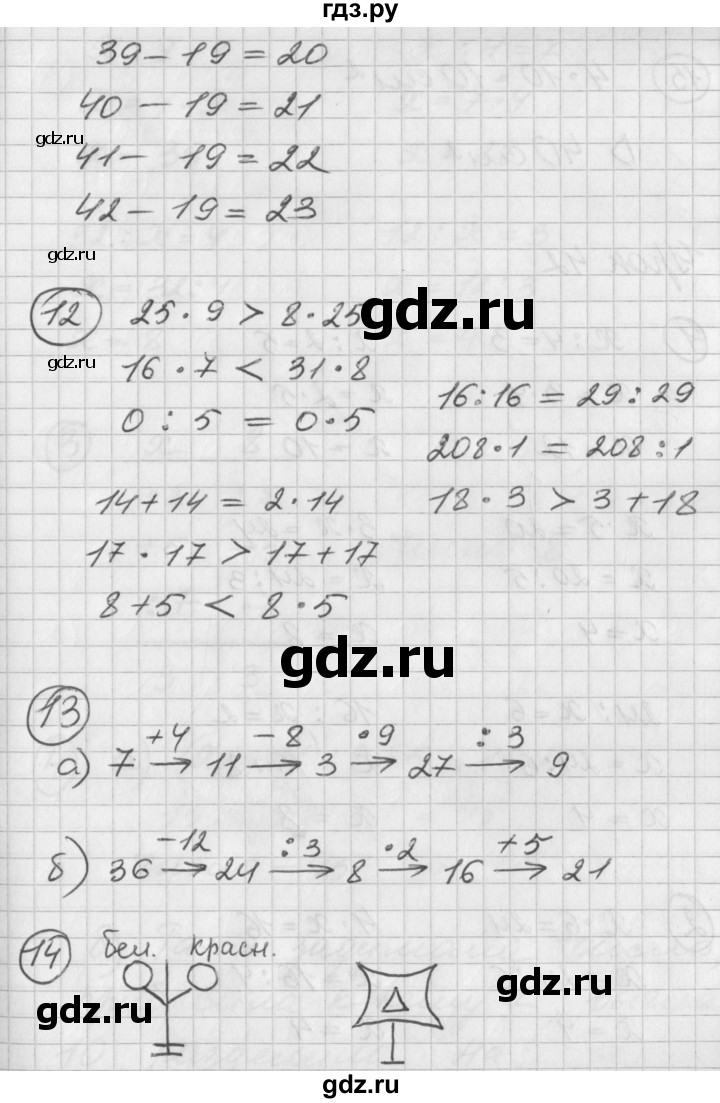 гдз.ру
39 - 19 = 20
40 - 19 = 21
gdz.ru
41 - 19 = 22
42 - 19 = 23
gdz.ru
12 25 · 9 > 8 · 25
gdz.ru
gdz.ru
16 · 7 < 31 · 8
0 : 5 = 0 · 5
16 : 16 = 29 : 29
208 · 1 = 208 : 1
14 + 14 = 2 · 14
18 · 3 > 3 + 18
17 · 17 > 17 + 17
8 + 5 < 8 · 5
gdz.ru
13
+4 -8 ·9 :3
а) 7 → 11 → 3 → 27 → 9
-12 :3 ·2 +5
б) 36 → 24 → 8 → 16 → 21
14 бел. красн.
gdz.ru
gdz.ru
gdz.ru